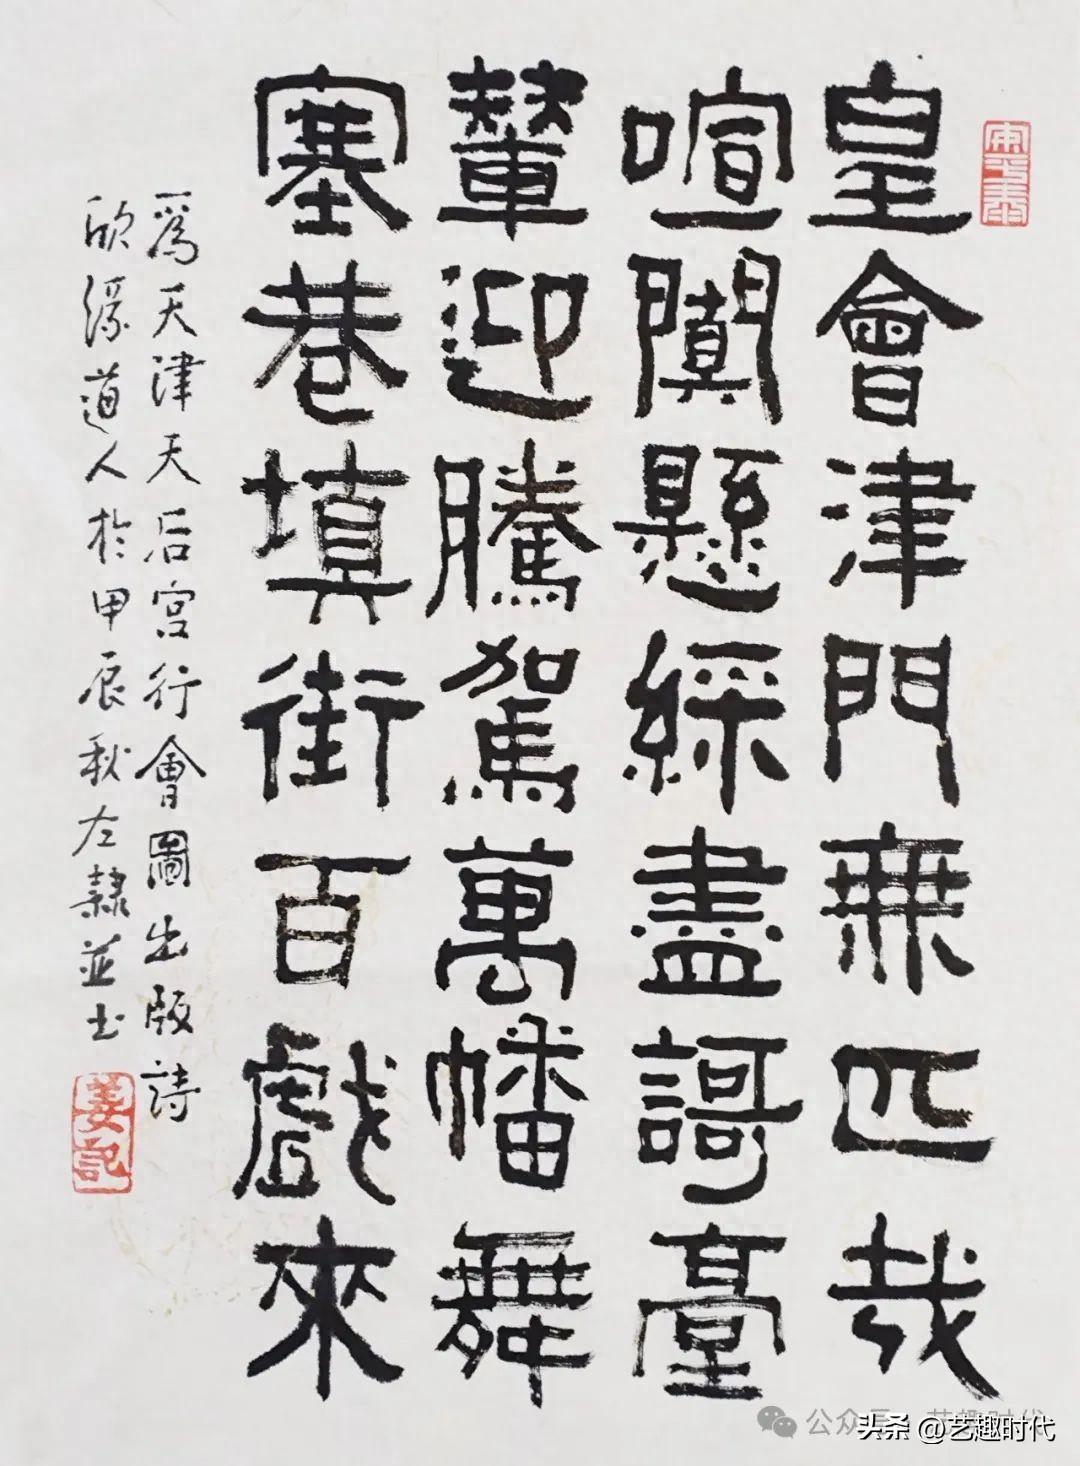 皇會津門無匹哉
喧闐懸綵盡謌臺
輦迎騰駕萬幡舞
塞巷填街百戲來
爲天津天后宮行會圖出版詩
欣緣道人於甲辰秋左隷並書
姜記
公众号 艺趣时代
头条 @艺趣时代